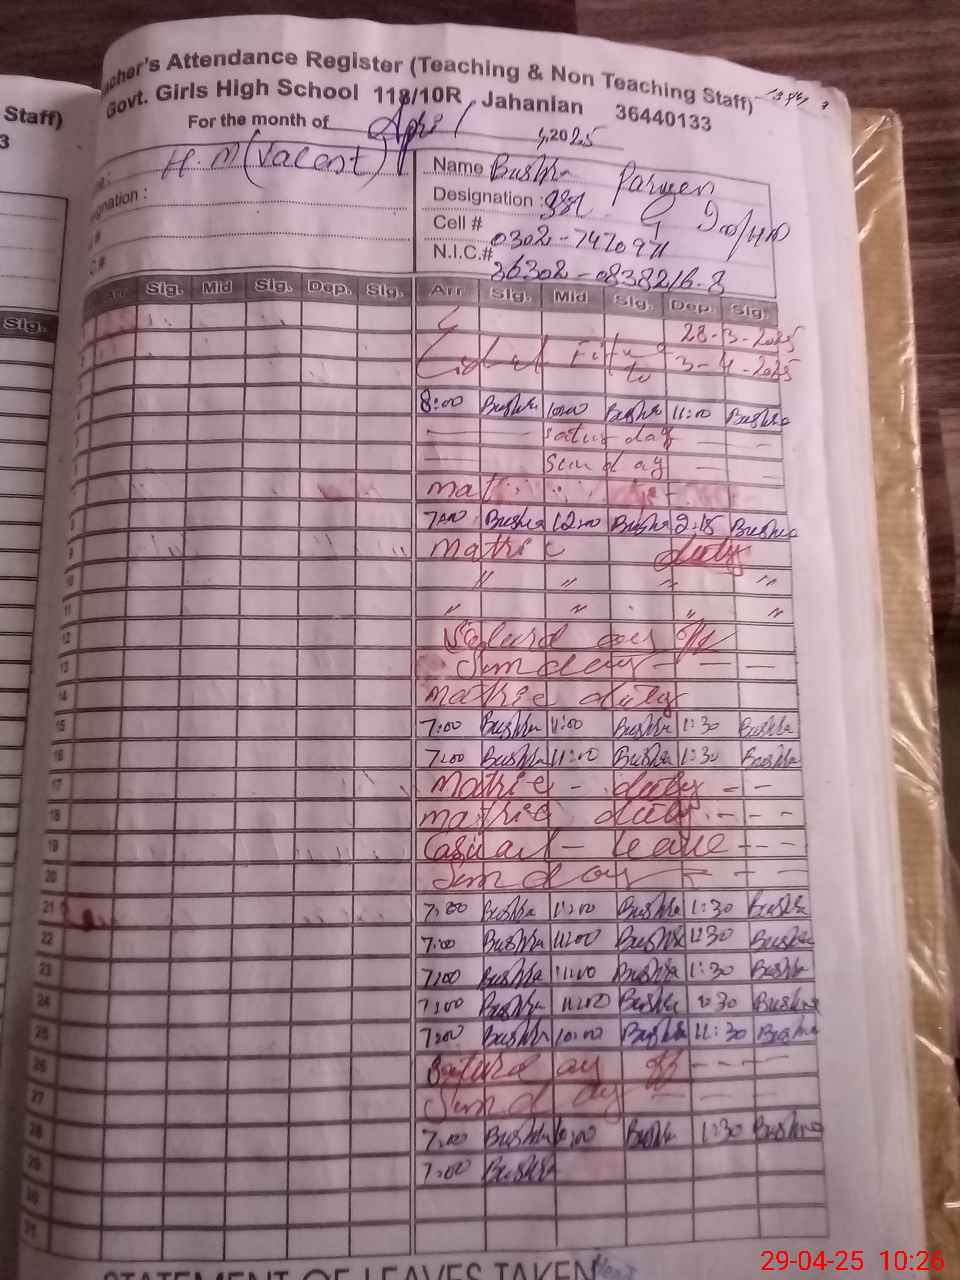 Staff)
3
Teacher's Attendance Register (Teaching & Non Teaching Staff)
Govt. Girls High School 118/10R Jahanian 36440133
For the month of April ,2025
H.M (Vacant)
Name Bushra Parveen
Designation :
Cell # 0302-7470971
N.I.C.# 36302-0838216-8
Arr. Sig. Mid Sig. Dep. Sig. Arr. Sig. Mid Sig. Dep. Sig.
Sig.
28-3-2025
Eid ul Fitr to 3-4-2025
4 8:00 Bushra 10:00 Bushra 11:00 Bushra
5 — Saturday — —
6 — Sunday — —
7 mat
8 7:00 Bushra 12:00 Bushra 2:15 Bushra
9 Matric duty
10 " " " "
11 " " " "
12 Saturday off
13 Sunday - - -
14 matric duty
15 7:00 Bushra 11:00 Bushra 1:30 Bushra
16 7:00 Bushra 11:00 Bushra 1:30 Bushra
17 Matric - duty - -
18 matric duty - - -
19 Casual - leave - - -
20 Sunday - - -
21 7:00 Bushra 11:00 Bushra 1:30 Bushra
22 7:00 Bushra 11:00 Bushra 1:30 Bushra
23 7:00 Bushra 11:00 Bushra 1:30 Bushra
24 7:00 Bushra 11:00 Bushra 1:30 Bushra
25 7:00 Bushra 10:00 Bushra 11:30 Bushra
26 Saturday off - - -
27 Sunday - - -
28 7:00 Bushra Bushra 1:30 Bushra
29 7:00 Bushra
30
31
STATEMENT OF LEAVES TAKEN
29-04-25 10:26